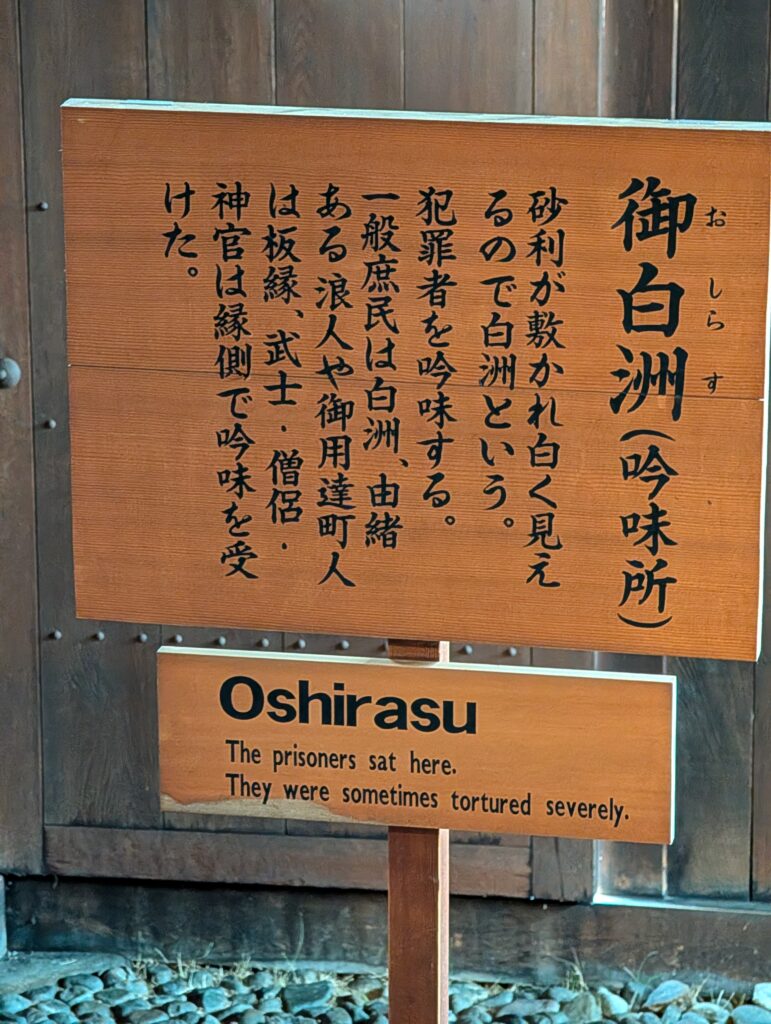 御白洲(吟味所)
おしらす
砂利が敷かれ白く見え
るので白洲という。
犯罪者を吟味する。
一般庶民は白洲、由緒
ある浪人や御用達町人
は板縁、武士・僧侶・
神官は縁側で吟味を受
けた。
Oshirasu
The prisoners sat here.
They were sometimes tortured severely.